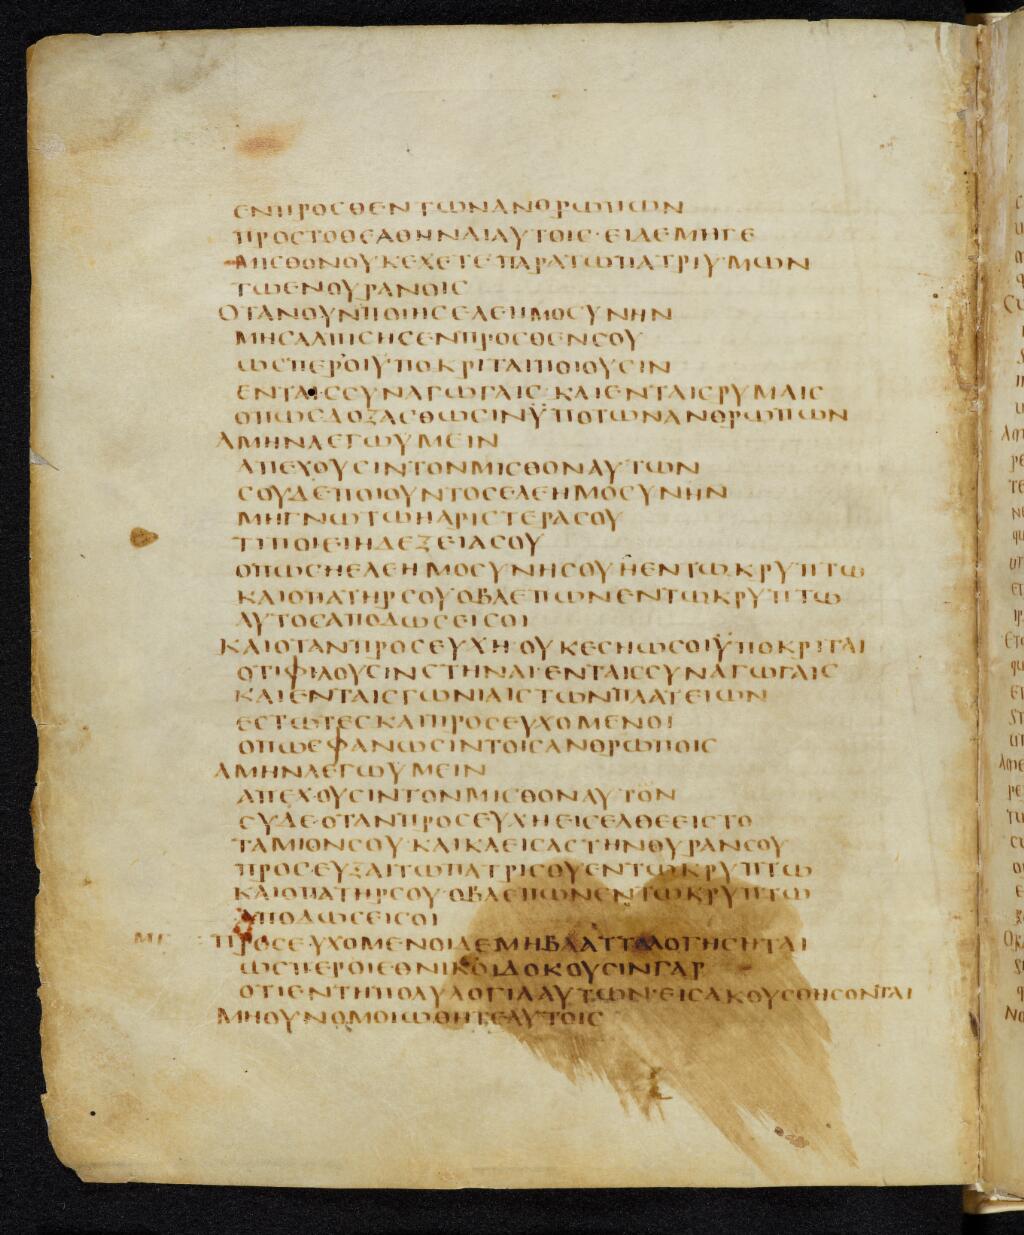 ΕΝΠΡΟΣΘΕΝΤΩΝΑΝΘΡΩΠΩΝ
ΠΡΟΣΤΟΘΕΑΘΗΝΑΙΑΥΤΟΙΣ· ΕΙΔΕΜΗΓΕ
ΜΙΣΘΟΝΟΥΚΕΧΕΤΕΠΑΡΑΤΩΠΑΤΡΙΥΜΩΝ
ΤΩΕΝΟΥΡΑΝΟΙΣ
ΟΤΑΝΟΥΝΠΟΙΗΣΕΛΕΗΜΟΣΥΝΗΝ
ΜΗΣΑΛΠΙΣΗΣΕΝΠΡΟΣΘΕΝΣΟΥ
ΩΣΠΕΡΟΙΥΠΟΚΡΙΤΑΙΠΟΙΟΥΣΙΝ
ΕΝΤΑΙΣΣΥΝΑΓΩΓΑΙΣ· ΚΑΙΕΝΤΑΙΣΡΥΜΑΙΣ
ΟΠΩΣΔΟΞΑΣΘΩΣΙΝΫΠΟΤΩΝΑΝΘΡΩΠΩΝ
ΑΜΗΝΛΕΓΩΥΜΕΙΝ
ΑΠΕΧΟΥΣΙΝΤΟΝΜΙΣΘΟΝΑΥΤΩΝ
ΣΟΥΔΕΠΟΙΟΥΝΤΟΣΕΛΕΗΜΟΣΥΝΗΝ
ΜΗΓΝΩΤΩΗΑΡΙΣΤΕΡΑΣΟΥ
ΤΙΠΟΙΕΙΗΔΕΞΕΙΑΣΟΥ
ΟΠΩΣΗΕΛΕΗΜΟΣΥΝΗΣΟΥΗΕΝΤΩΚΡΥΠΤΩ
ΚΑΙΟΠΑΤΗΡΣΟΥΟΒΛΕΠΩΝΕΝΤΩΚΡΥΠΤΩ
ΑΥΤΟΣΑΠΟΔΩΣΕΙΣΟΙ
ΚΑΙΟΤΑΝΠΡΟΣΕΥΧΗ·ΟΥΚΕΣΗΩΣΟΙΫΠΟΚΡΙΤΑΙ
ΟΤΙΦΙΛΟΥΣΙΝΣΤΗΝΑΙ·ΕΝΤΑΙΣΣΥΝΑΓΩΓΑΙΣ
ΚΑΙΕΝΤΑΙΣΓΩΝΙΑΙΣΤΩΝΠΛΑΤΕΙΩΝ
ΕΣΤΩΤΕΣΚΑΙΠΡΟΣΕΥΧΟΜΕΝΟΙ
ΟΠΩΣΦΑΝΩΣΙΝΤΟΙΣΑΝΘΡΩΠΟΙΣ
ΑΜΗΝΛΕΓΩΥΜΕΙΝ
ΑΠΕΧΟΥΣΙΝΤΟΝΜΙΣΘΟΝΑΥΤΟΝ
ΣΥΔΕΟΤΑΝΠΡΟΣΕΥΧΗΕΙΣΕΛΘΕΕΙΣΤΟ
ΤΑΜΙΟΝΣΟΥ·ΚΑΙΚΛΕΙΣΑΣΤΗΝΘΥΡΑΝΣΟΥ
ΠΡΟΣΕΥΞΑΙΤΩΠΑΤΡΙΣΟΥΕΝΤΩΚΡΥΠΤΩ
ΚΑΙΟΠΑΤΗΡΣΟΥ·ΟΒΛΕΠΩΝΕΝΤΩΚΡΥΠΤΩ
ΑΠΟΔΩΣΕΙΣΟΙ
ΠΡΟΣΕΥΧΟΜΕΝΟΙΔΕΜΗΒΛΑΤΤΑΛΟΓΗΣΗΤΑΙ
ΩΣΠΕΡΟΙΕΘΝΙΚΟΙΔΟΚΟΥΣΙΝΓΑΡ
ΟΤΙΕΝΤΗΠΟΛΥΛΟΓΙΑΑΥΤΩΝ·ΕΙΣΑΚΟΥΣΘΗΣΟΝΤΑΙ
ΜΗΟΥΝΟΜΟΙΩΘΗΤΕΑΥΤΟΙΣ